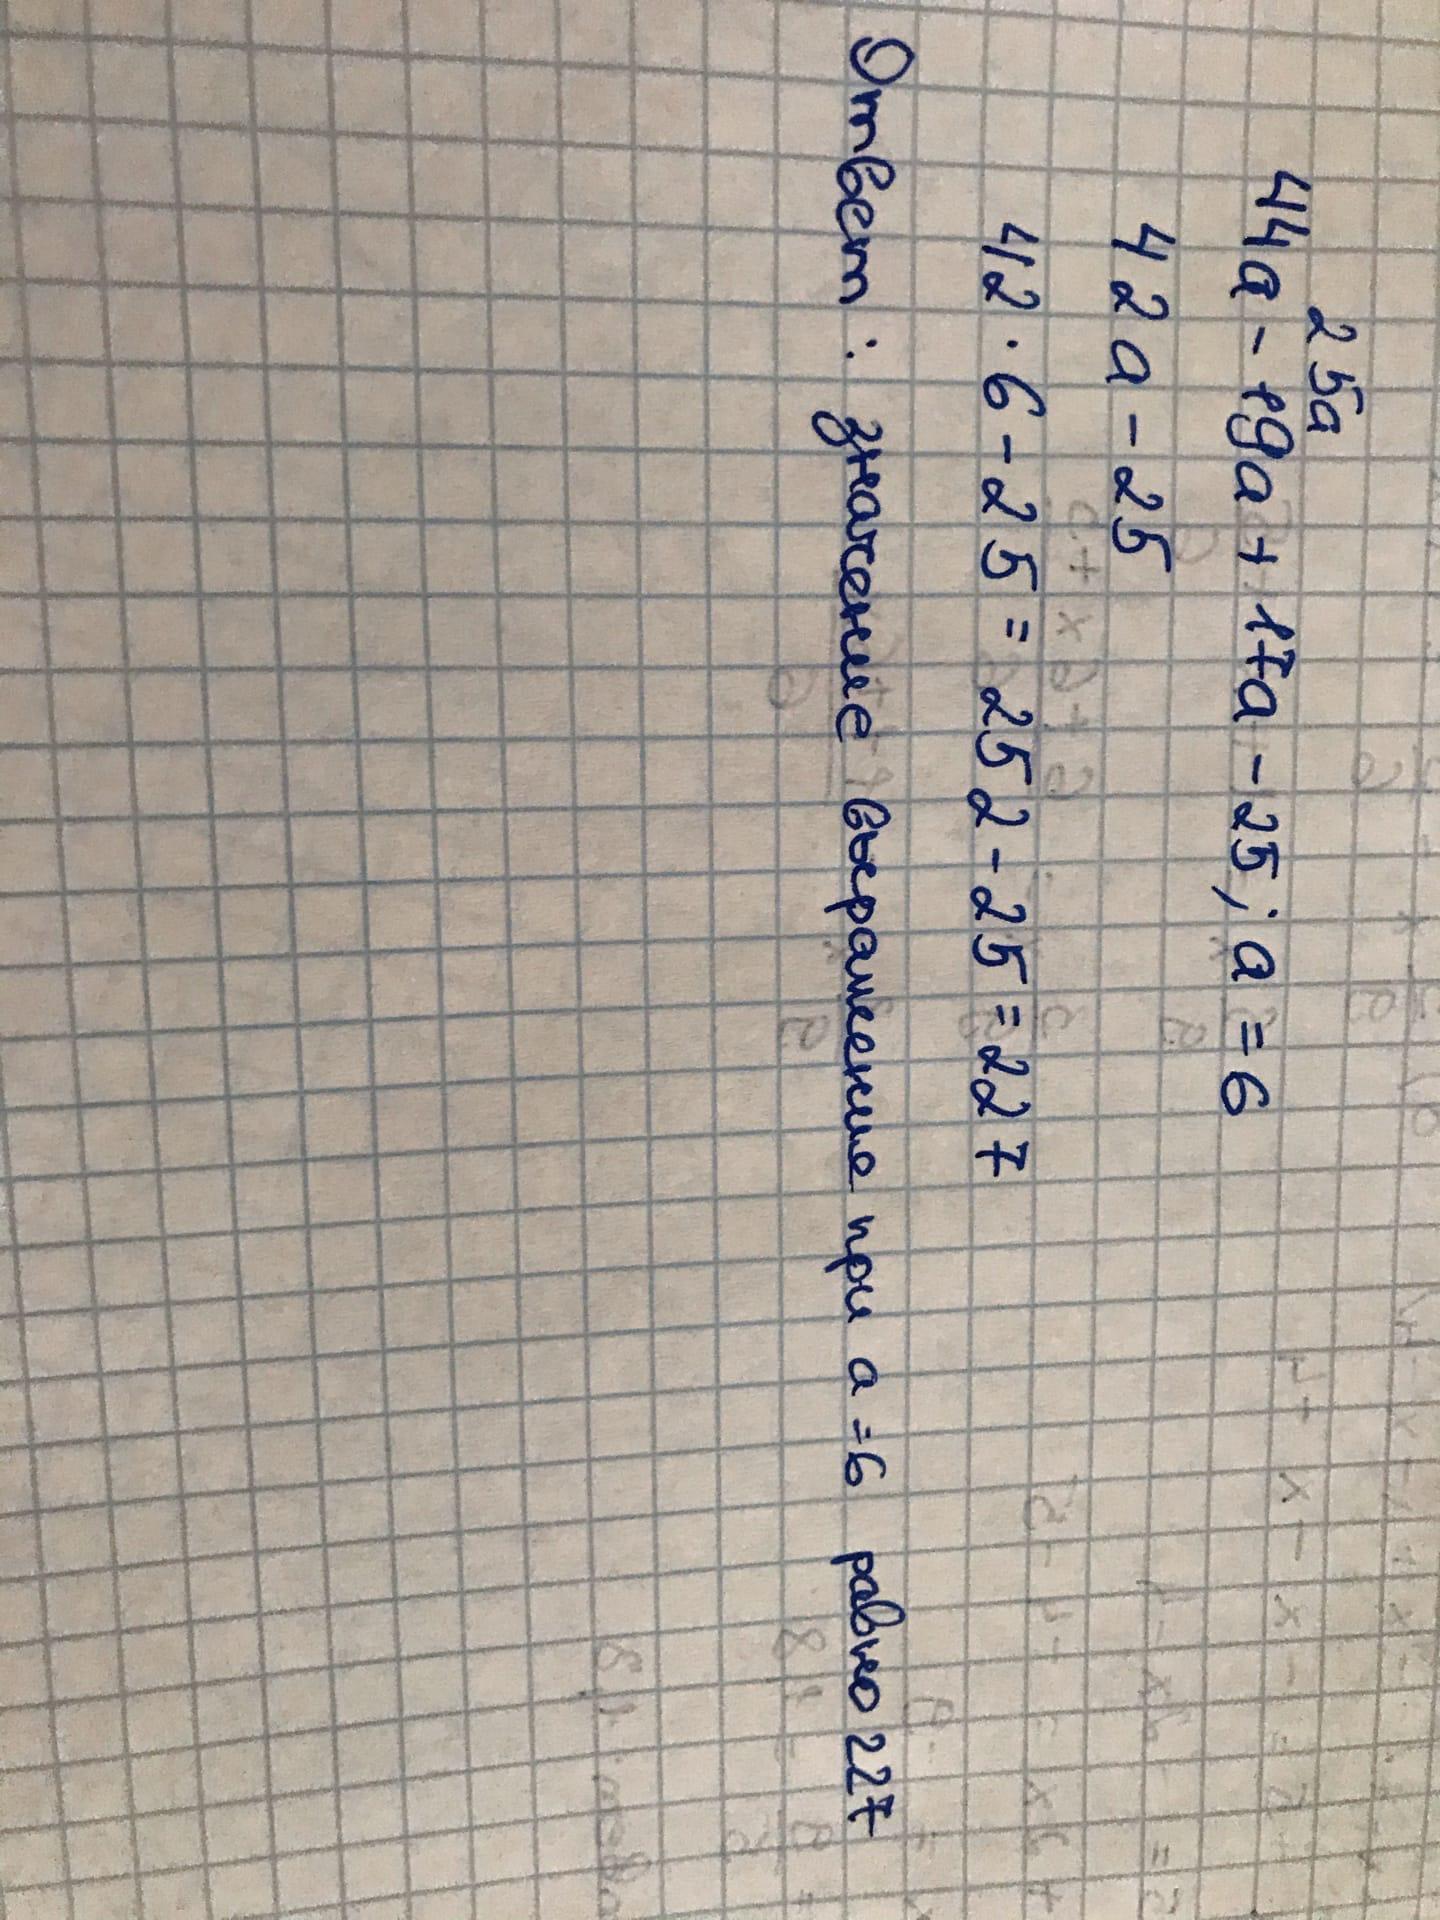 25a
44a - 19a + 17a - 25; a = 6
42a - 25
42 · 6 - 25 = 252 - 25 = 227
Ответ: значение выражение при a = 6 равно 227